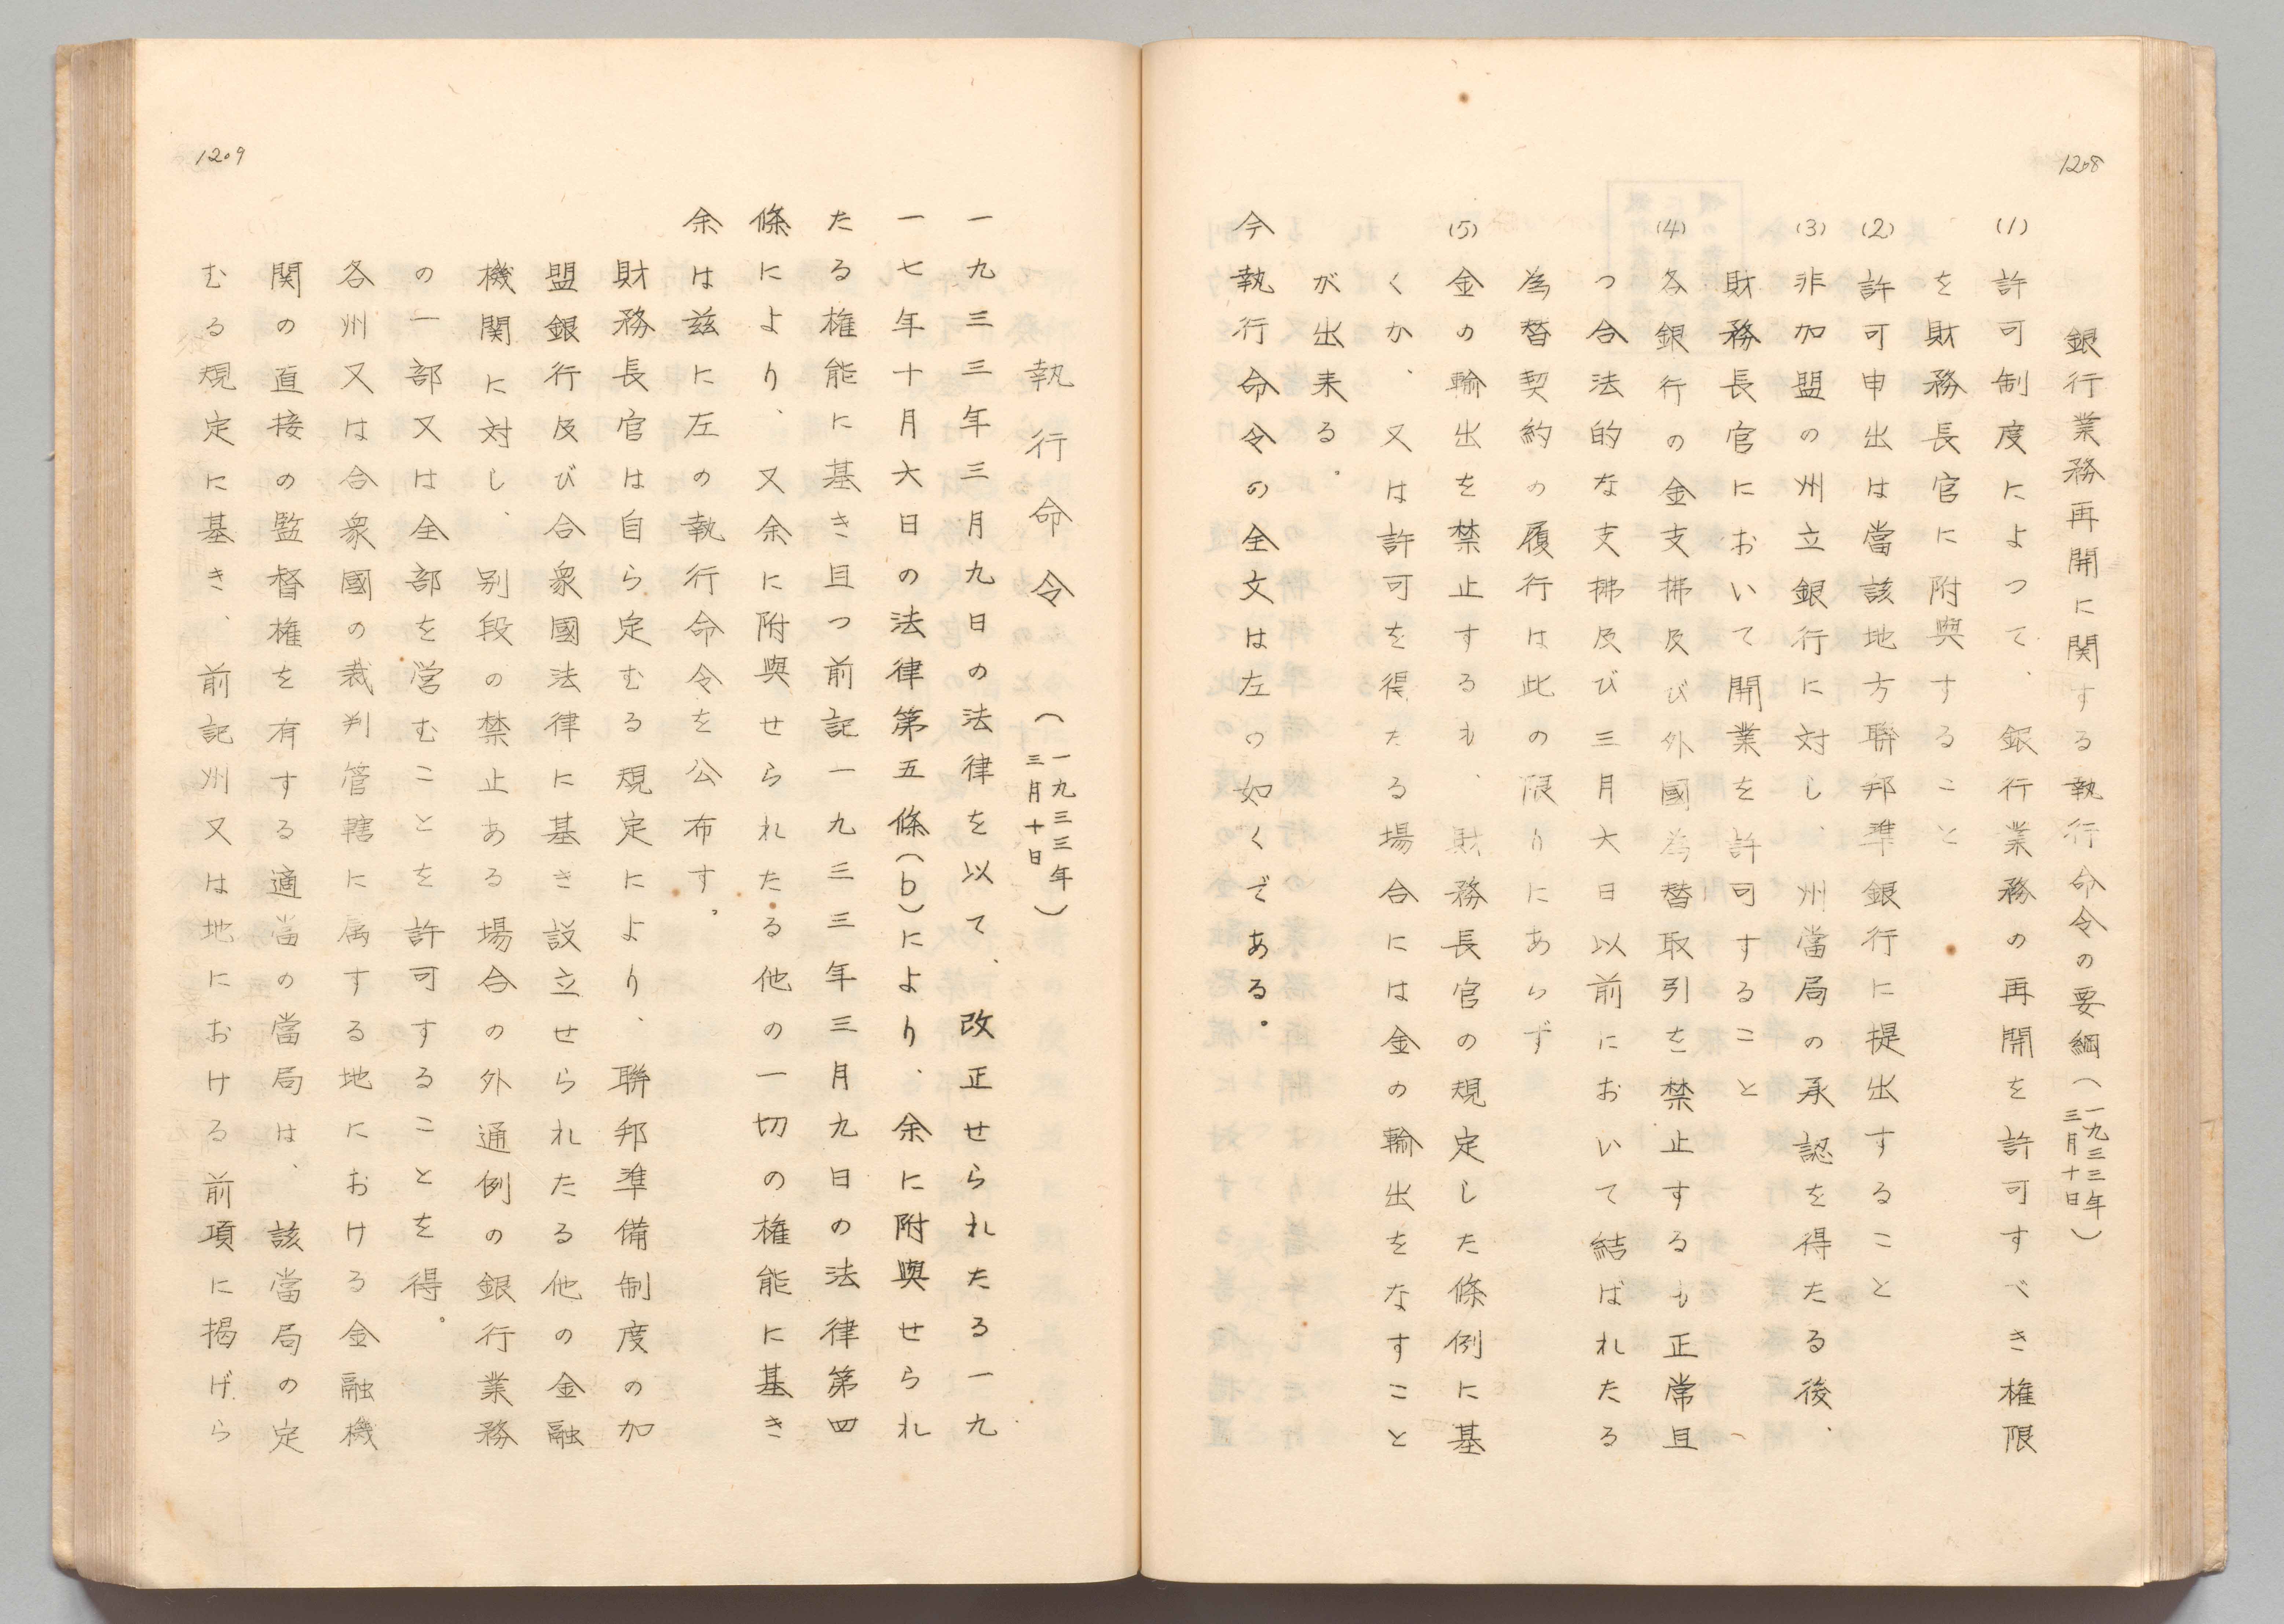 1208
銀行業務再開に関する執行命令の要綱（一九三三年三月十日）
(1) 許可制度によつて、銀行業務の再開を許可すべき権限
を財務長官に附與すること
(2) 許可申出は當該地方聯邦準銀行に提出すること
(3) 非加盟の州立銀行に対し、州當局の承認を得たる後、
財務長官において開業を許可すること
(4) 各銀行の金支拂及び外國為替取引を禁止するも正常且
つ合法的な支拂及び三月六日以前において結ばれたる
為替契約の履行は此の限りにあらず
(5) 金の輸出を禁止するも、財務長官の規定した條例に基
くか、又は許可を得たる場合には金の輸出をなすこと
が出来る。
今執行命令の全文は左の如くである。
1209
執行命令（一九三三年三月十日）
一九三三年三月九日の法律を以て、改正せられたる一九
一七年十月六日の法律第五條(b)により、余に附與せられ
たる権能に基き且つ前記一九三三年三月九日の法律第四
條により、又余に附與せられたる他の一切の権能に基き
余は茲に左の執行命令を公布す。
財務長官は自ら定むる規定により、聯邦準備制度の加
盟銀行及び合衆國法律に基き設立せられたる他の金融
機関に対し、別段の禁止ある場合の外通例の銀行業務
の一部又は全部を営むことを許可することを得。
各州又は合衆國の裁判管轄に属する地における金融機
関の直接の監督権を有する適當の當局は、該當局の定
むる規定に基き、前記州又は地における前項に掲げら